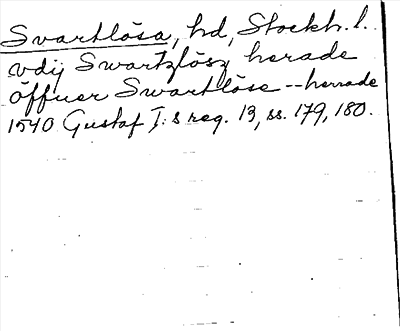 Svartlösa, hd, Stockh. l.
vdij Swartzlösz herade
öffuer Swartlöse -- herrade
1540 Gustaf I:s reg. 13, ss. 179, 180.